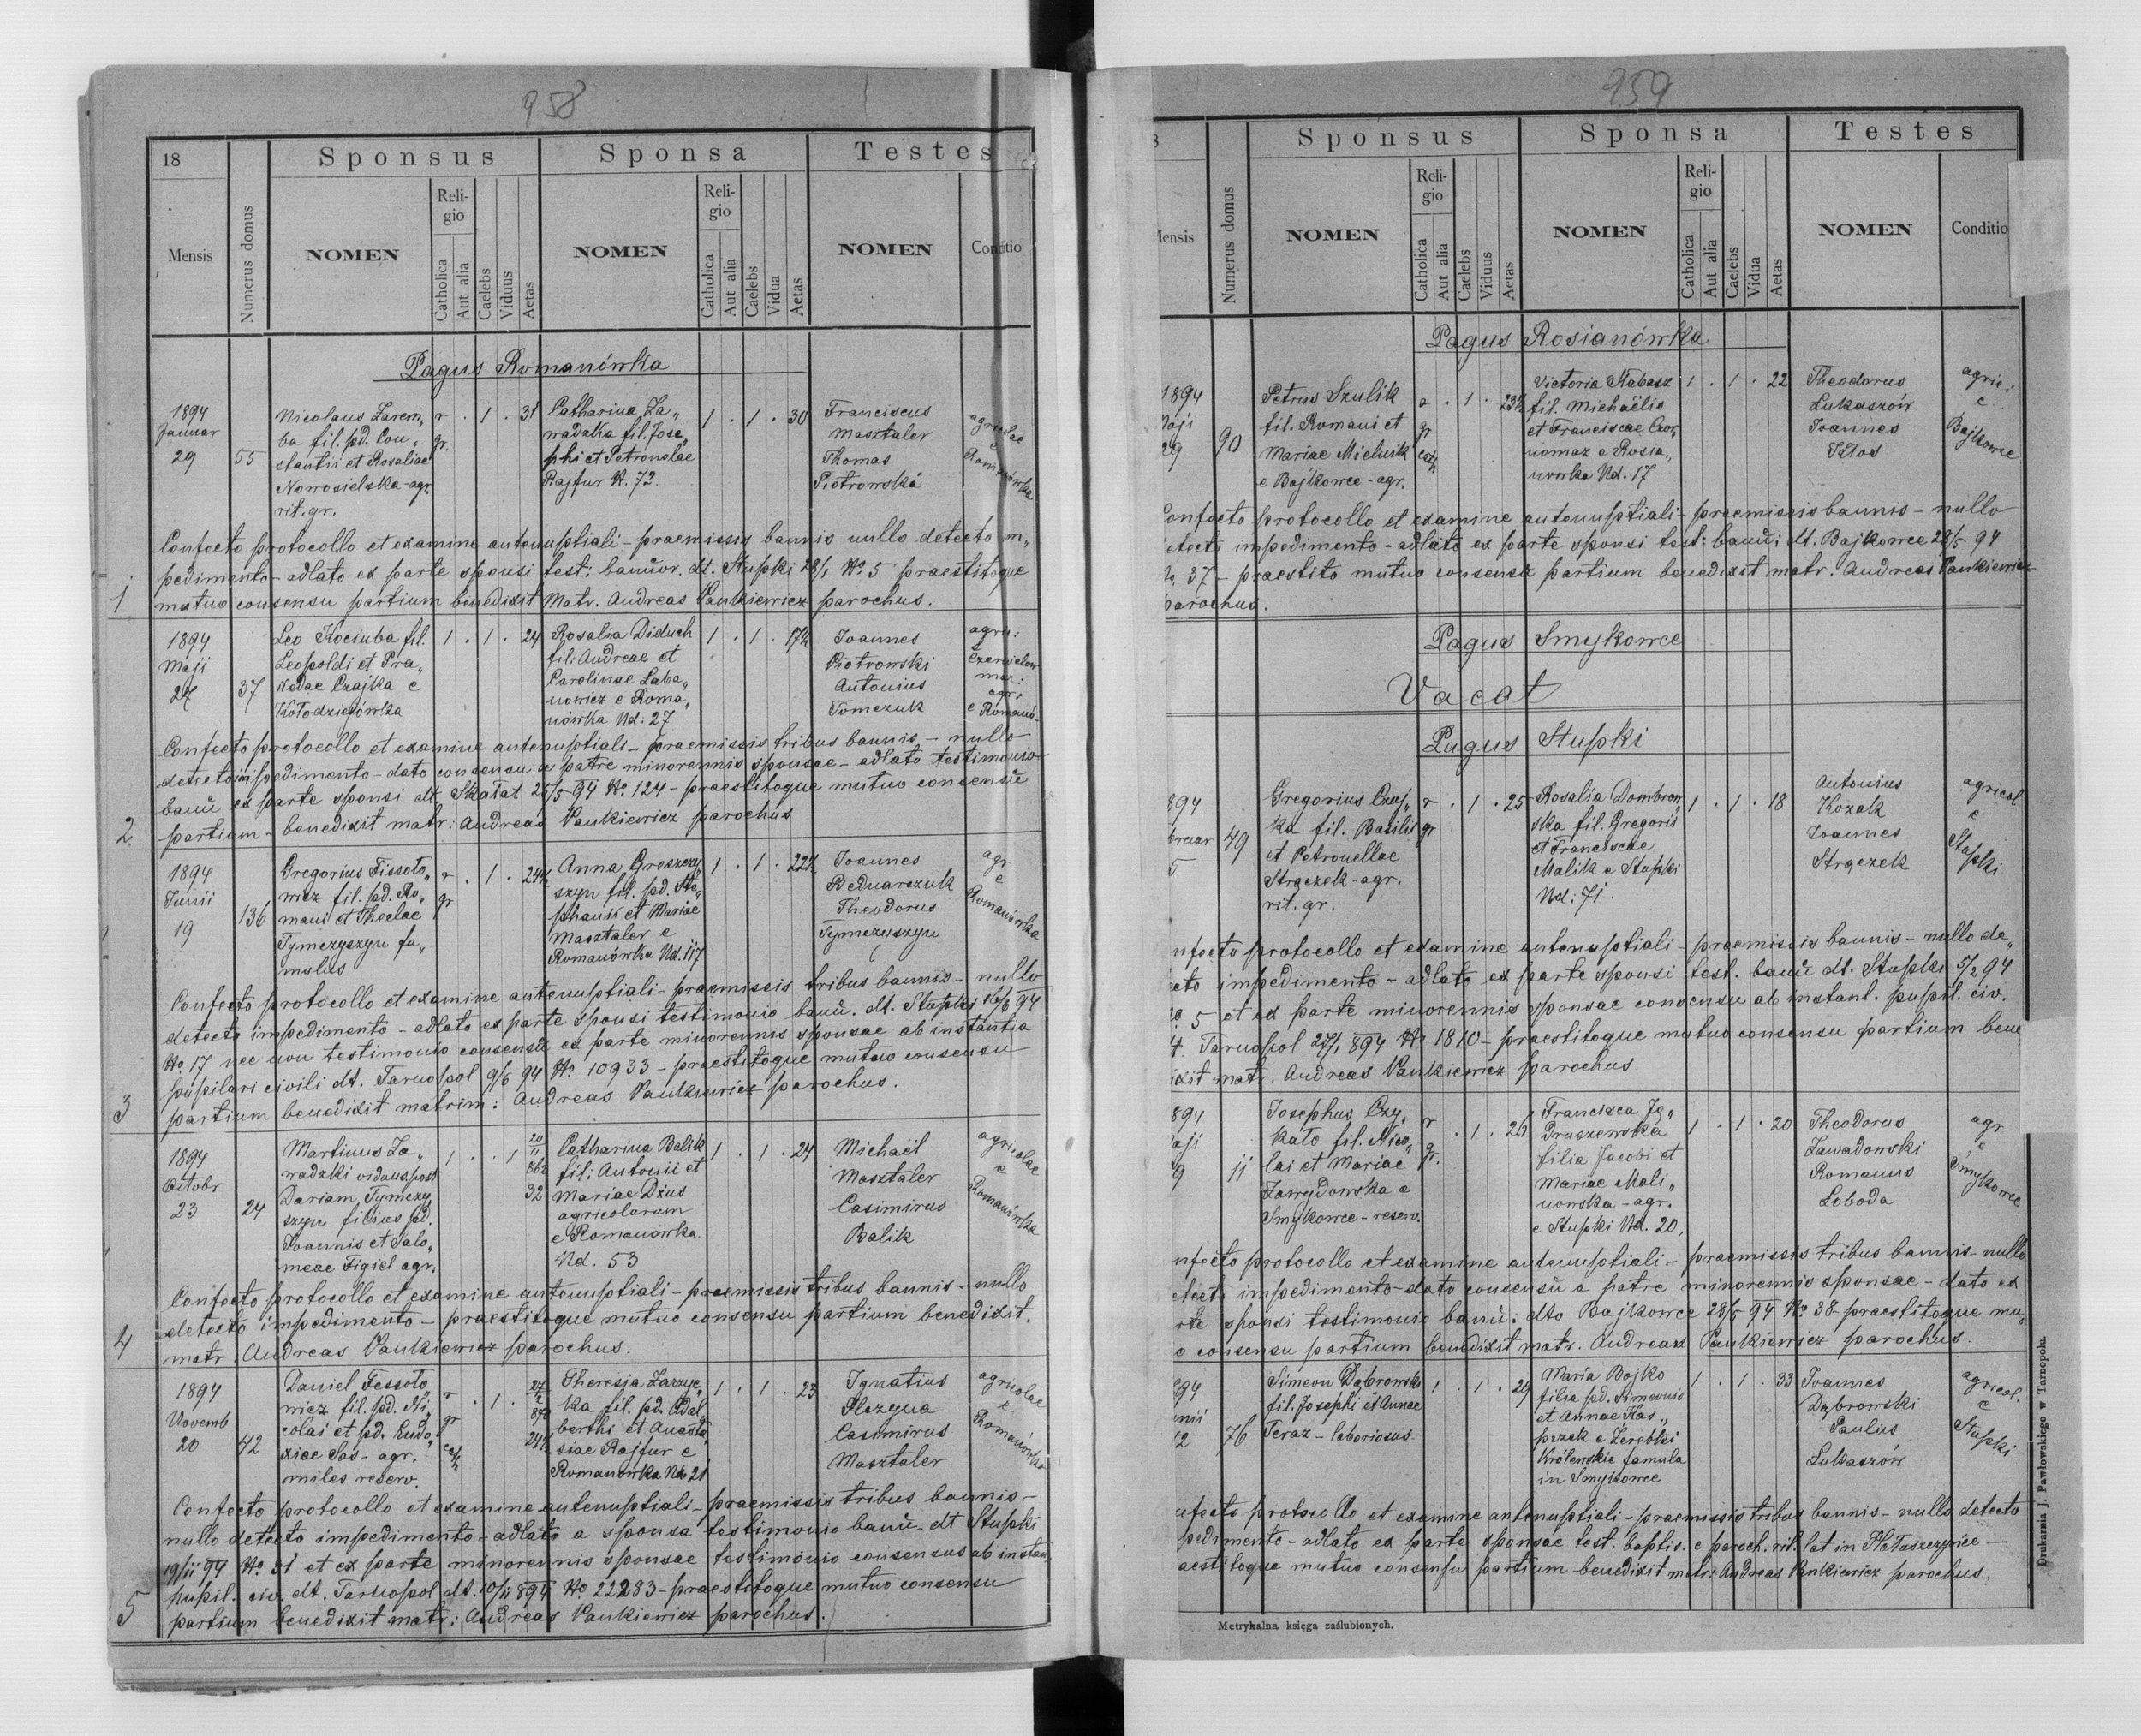 958
18
Sponsus
Sponsa
Testes
Mensis
Numerus domus
NOMEN
Religio
Catholica
Aut alia
Caelebs
Viduus
Aetas
NOMEN
Religio
Catholica
Aut alia
Caelebs
Vidua
Aetas
NOMEN
Conditio
Pagus Romanówka
1894
Januar
29
55
Nicolaus Zarem„
ba fil. pd. Con„
stantii et Rosaliae
Nowosielska-agr.
rit. gr.
r
gr.
. 1 . 31
Catharina Za„
wadzka fil. Jose„
phi et Petronelae
Rajfur N. 72.
1 . 1 . 30
Franciscus
Masztaler
Thomas
Piotrowski
agricolae
e
Romanówka
Confecto protocollo et examine antenuptiali - praemissis bannis nullo detecto im„
pedimento - adlato ex parte sponsi test. bannor. dt. Stupki 28/1 No 5 praestitoque
1
mutuo consensu partium benedixit Matr. Andreas Pankiewicz parochus.
1894
Maji
27
37
Leo Kociuba fil.
Leopoldi et Pra„
xedae Czajka e
Kołodziejówka
1 . 1 . 24
Rosalia Diduch
fil: Andreae et
Carolinae Laba„
nowicz e Roma„
nówka Nd: 27
1 . 1 . 17½
Joannes
Piotrowski
Antonius
Tomczuk
agric:
Czernielow
maz:
agr:
e Romanó-
Confecto protocollo et examine antenuptiali - praemissis tribus bannis - nullo
detecto impedimento - dato consensu a patre minorennis sponsae - adlato testimonio
bann ex parte sponsi dt Skałat 25/5 94 No. 124 - praestitoque mutuo consensu
2
partium - benedixit matr: Andreas Pankiewicz parochus
1894
Junii
19
136
Gregorius Tissoto„
wicz fil. pd. Ro„
mani et Theclae
Tymczyszyn fa„
mulus
r
gr
. 1 . 24½
Anna Greszczy„
szyn fil. pd. Ste„
phani et Mariae
Masztaler e
Romanówka Nd. 117
1 . 1 . 22½
Joannes
Bednarczuk
Theodorus
Tymczyszyn
agr
e
Romanówka
Confecto protocollo et examine antenuptiali - praemissis tribus bannis - nullo
detecto impedimento - adlato ex parte sponsi testimonio bann. dt. Stupki 16/6 94
No. 17 nec non testimonio consensu ex parte minorennis sponsae ab instantia
pupilari civili dt. Tarnopol 9/6 94 No. 10933 - praestitoque mutuo consensu
3
partium benedixit matrim: Andreas Pankiewicz parochus.
1894
Octobr
23
24
Martinus Za„
wadzki viduus post
Dariam Tymczy„
szyn filius pd.
Joannis et Salo„
meae Figiel agr.
1 . . 1
32
Catharina Balik
fil: Antonii et
Mariae Dzius
agricolarum
e Romanówka
Nd. 53
1 . 1 . 24
Michaël
Masztaler
Casimirus
Balik
agricolae
e
Romanówka
Confecto protocollo et examine antenuptiali - praemissis tribus bannis - nullo
detecto impedimento - praestitoque mutuo consensu partium benedixit.
4
matr. Andreas Pankiewicz parochus.
1894
Novemb
20
42
Daniel Tessoto„
wicz fil. pd. Ni„
colai et pd. Eudo„
xiae Sas - agr.
miles reserv.
r
gr
cath
. 1 .
24½
Theresia Zazzyc„
ka fil. pd. Adal„
berthi et Anasta„
siae Rajfur e
Romanówka Nd. 21
1 . 1 . 23
Ignatius
Casimirus
Masztaler
agricolae
e
Romanówka
Confecto protocollo et examine antenuptiali - praemissis tribus bannis -
nullo detecto impedimento - adlato a sponsa testimonio bann - dt Stupki
19/11 94 No. 31 et ex parte minorennis sponsae testimonio consensus ab instan
pupil. civ. dt. Tarnopol dt. 10/11 894 No 22283 - praestitoque mutuo consensu
5
partium benedixit matr: Andreas Pankiewicz parochus.
959
8
Sponsus
Sponsa
Testes
Mensis
Numerus domus
NOMEN
Religio
Catholica
Aut alia
Caelebs
Viduus
Aetas
NOMEN
Religio
Catholica
Aut alia
Caelebs
Vidua
Aetas
NOMEN
Conditio
Pagus Rosianówka
1894
Maji
29
90
Petrus Szulik
fil. Romani et
Mariae Mielnik
e Bajkowce - agr.
r
gr
cath
. 1 . 23½
Victoria Habasz
fil. Michaëlis
et Franciscae Czor„
nomaz e Rosia„
nowka Nd. 17
1 . 1 . 22
Theodorus
Lukaszów
Joannes
Kłos
agric:
e
Bajkowce
Confecto protocollo et examine antenuptiali - praemissis bannis - nullo
etecto impedimento - adlato ex parte sponsi test: bann: dt. Bajkowce 28/5 94
No. 37 - praestito mutuo consensu partium benedixit matr. Andreas Pankiewicz
parochus.
Pagus Smykowce
Vacat
Pagus Stupki
894
bruar
5
49
Gregorius Czaj„
ka fil. Basilii
et Petronellae
Strączek - agr.
rit. gr.
r
gr
. 1 . 25
Rosalia Dombrow„
ska fil. Gregorii
et Franciscae
Malik e Stupki
Nd: 71.
1 . 1 . 18
Antonius
Kozak
Joannes
Strączek
agricol
e
Stupki
nfecto protocollo et examine antenuptiali - praemissis bannis - nullo de„
ecto impedimento - adlato ex parte sponsi test. bann dt. Stupki 5/2 94
No. 5 et ex parte minorennis sponsae consensu ab instant. pupil. civ.
dt. Tarnopol 27/1 894 No 1810 - praestitoque mutuo consensu partium bene
ixit matr. Andreas Pankiewicz parochus
894
aji
9
11
Josephus Czy„
kato fil. Nico„
lai et Mariae
Zawydowska e
Smykowce - reserv.
r
gr.
. 1 . 26
Francisca Ję„
Druszewska
filia Jacobi et
Mariae Mali„
nowska - agr.
e Stupki Nd. 20,
1 . 1 . 20
Theodorus
Zawadowski
Romanus
Łoboda
agr
e
Smykowce
nfecto protocollo et examine antenuptiali - praemissis tribus bannis - nullo
etecto impedimento - dato consensu a patre minorennis sponsae - dato ex
rte sponsi testimonio bann: dto Bajkowce 28/5 94 No. 38 - praestitoque mu„
o consensu partium benedixit matr. Andreas Pankiewicz parochus.
94
unii
12
76
Simeon Dąbrowski
fil. Josephi et Annae
Teraz - laboriosus.
1 . 1 . 29
Maria Bojko
filia pd. Simeonis
et Annae Kas„
pczak e Zerebki
Królewskie famula
in Smykowce
1 . 1 . 33
Joannes
Dąbrowski
Paulus
Lukaszów
agricol.
e
Stupki
nfecto protocollo et examine antenuptiali - praemissis tribus bannis - nullo detecto
pedimento - adlato ex parte sponsae test. baptis. e paroch. rit. lat in Hałuszczyńce -
aestitoque mutuo consensu partium benedixit matr: Andreas Pankiewicz parochus.
Metrykalna księga zaślubionych.
Drukarnia J. Pawłowskiego w Tarnopolu.